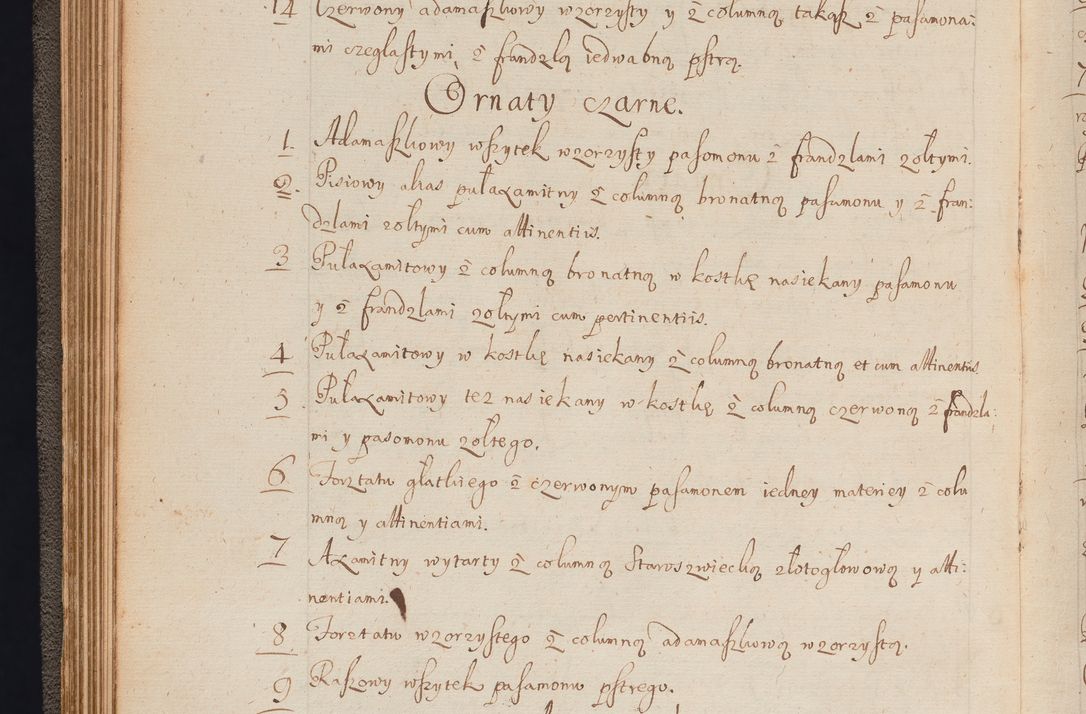 14 Czerwony adamaszkowy wzorzysty y z columną takąż z pasamona:
mi czeglastymi, z frandzlą iedwabną pstrą.
Ornaty czarne.
1. Adamaszkowy wszytek wzorzysty pasomonu z frandzlami zołtymi.
2. Pisiowy alias pułaxamitny z columną bronatną pasamonu y z fran:
dzlami zołtymi cum attinentiis.
3 Pułaxamitowy z columną bronatną w kostkę nasiekany pasamonu
y z frandzlami zołtymi cum pertinentiis.
4 Pułaxamitowy w kostkę nasiekany z columną bronatną et cum attinentiis
5 Pułaxamitowy tez nasiekany w kostkę z columną czerwoną z frandzla:
mi y pasomonu zołtego.
6 Forztatu głatkiego z czerwonym pasamonem iedney materiey z colu
mną y attinentiami.
7 Axamitny wytarty z columną Staroszwiecką złotogłowową y atti:
nentiami.
8 Forztatu wzorzystego z columną adamaszkową wzorzystą.
9 Raszowy wszytek pasamonu pstrego.